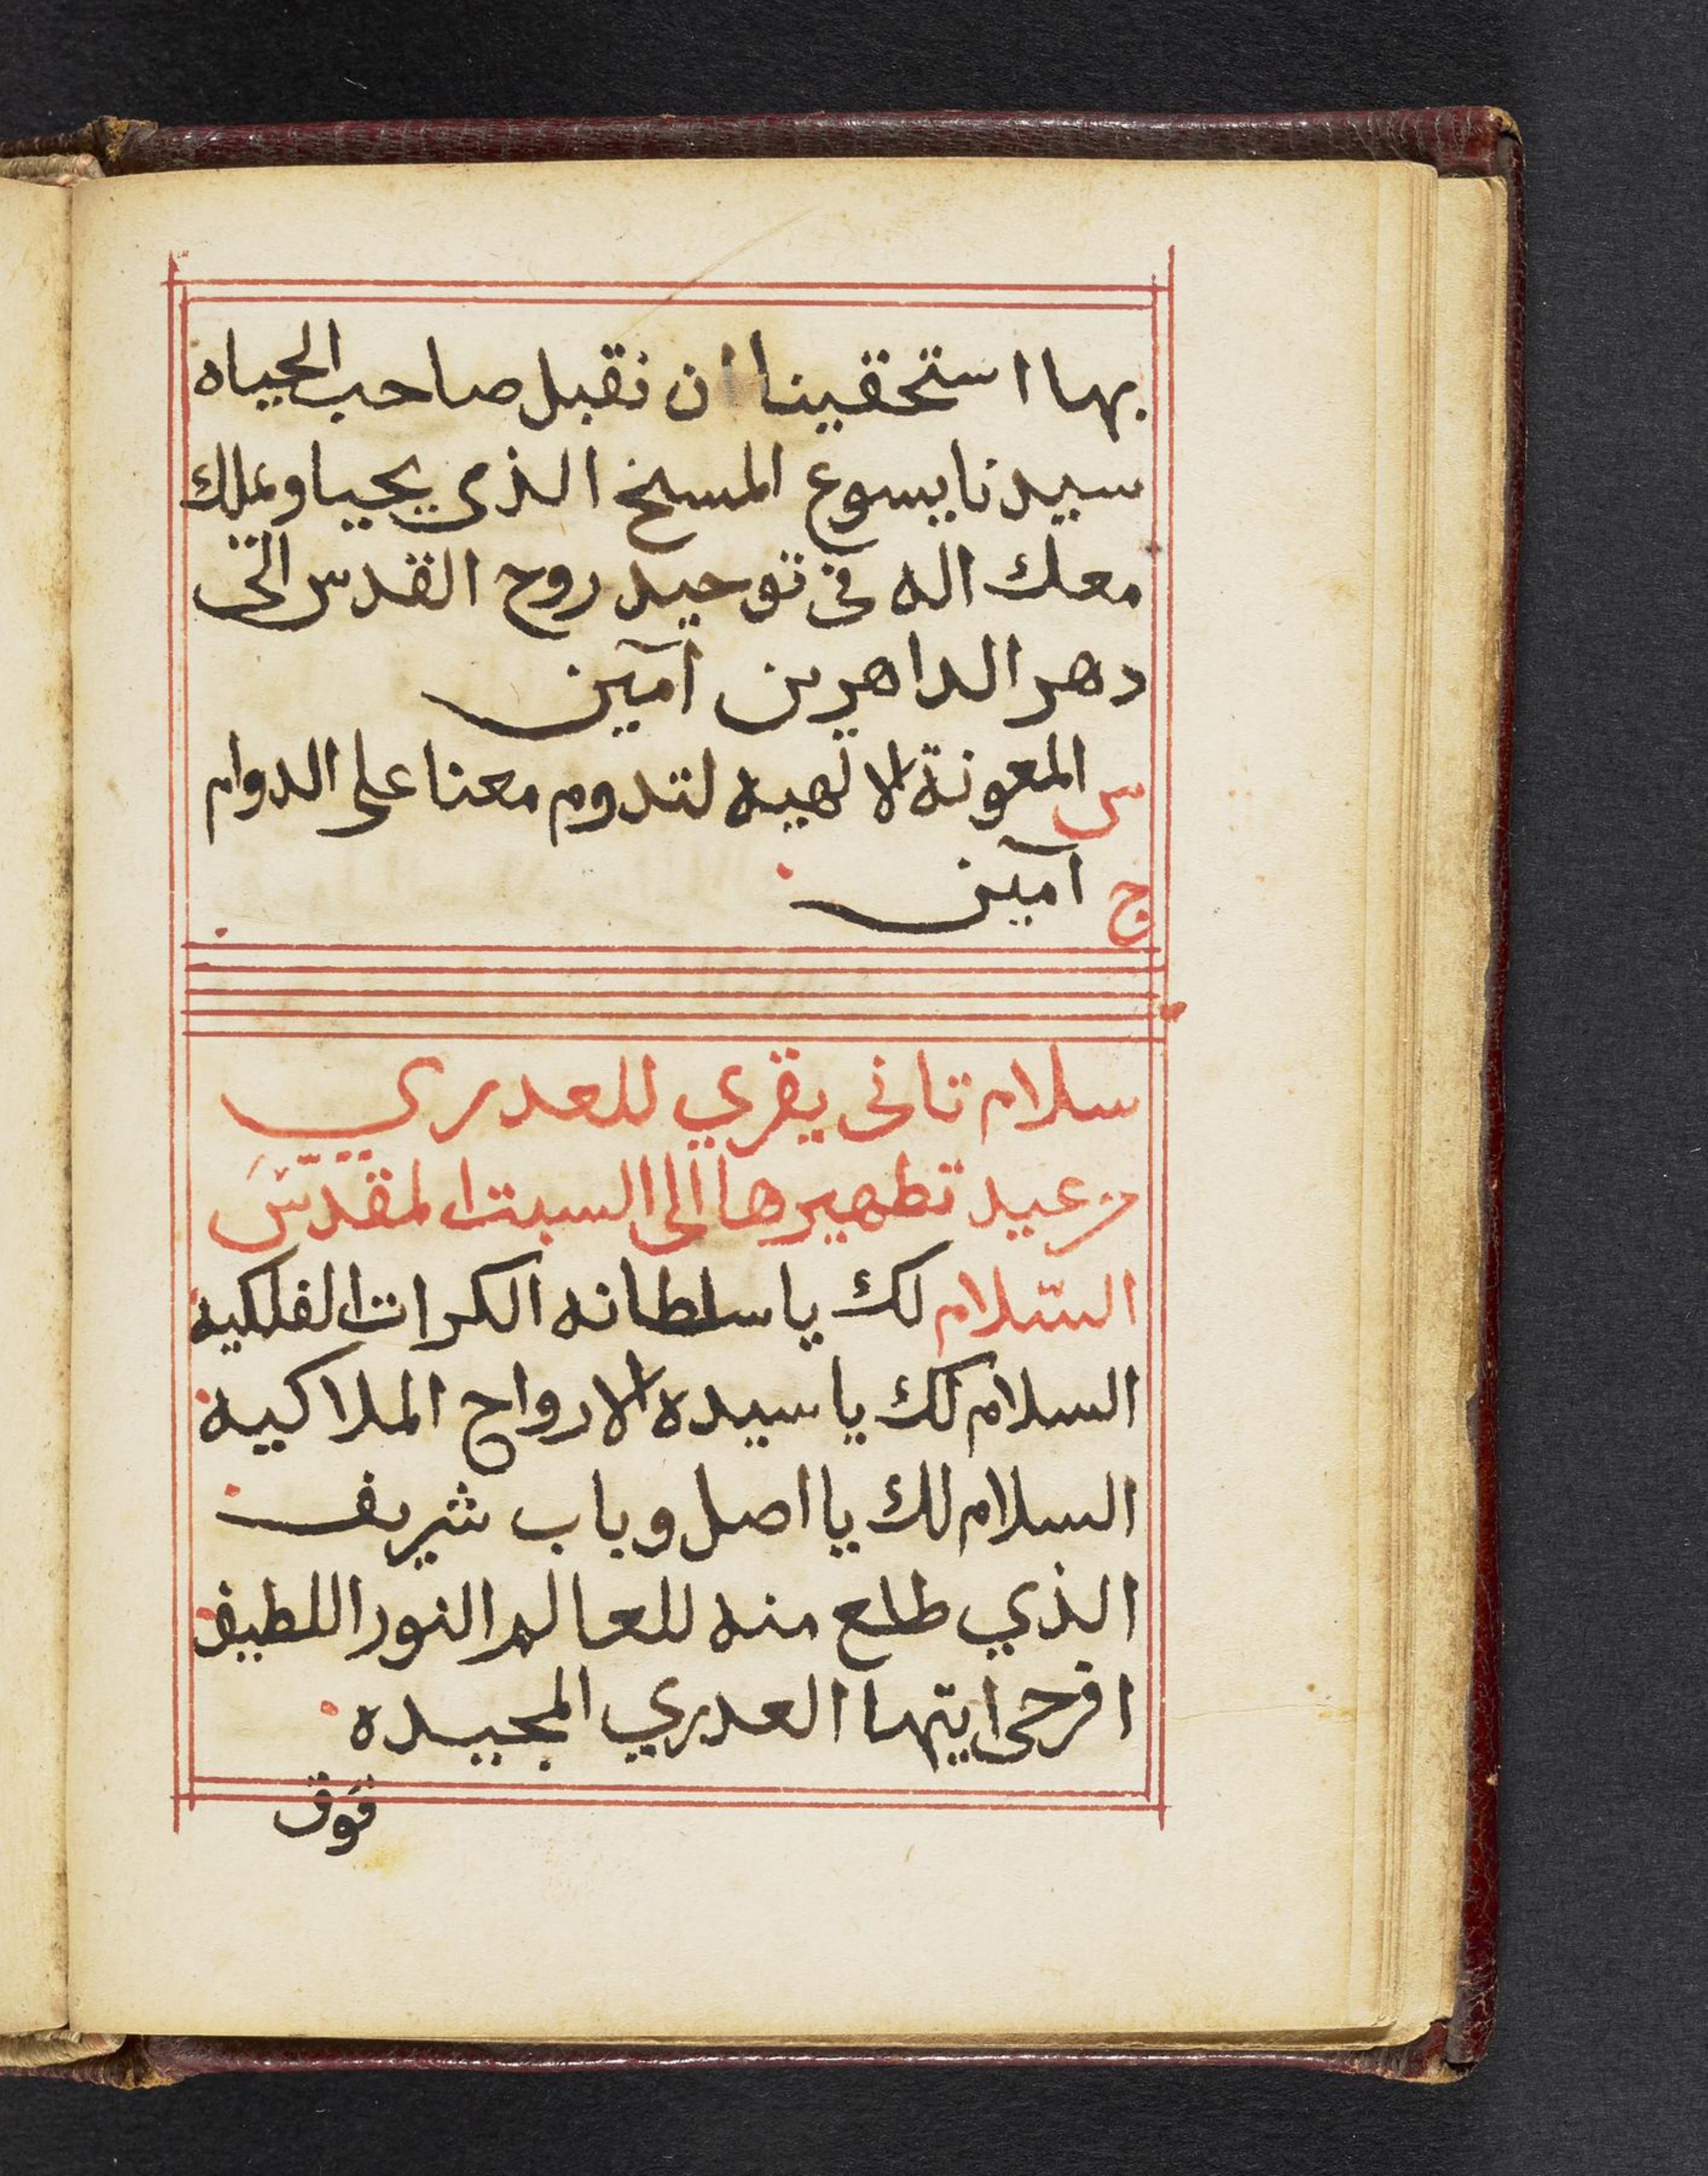 بها استحقينا ان نقبل صاحب الحياه
سيدنا يسوع المسيح الذي يحيا ويملك
معك اله في توحيد روح القدس الي
دهر الداهرين آمين
س المعونة الالهيه لتدوم معنا على الدوام
ج آمين
سلام تاني يقري للعدري
من عيد تطهيرها الي السبت المقدس
السلام لك يا سلطانه الكرات الفلكيه
السلام لك يا سيده الارواح الملاكيه
السلام لك يا اصل وباب شريف
الذي طلع منه للعالم النور اللطيف
افرحي ايتها العدري المجيده
فوق